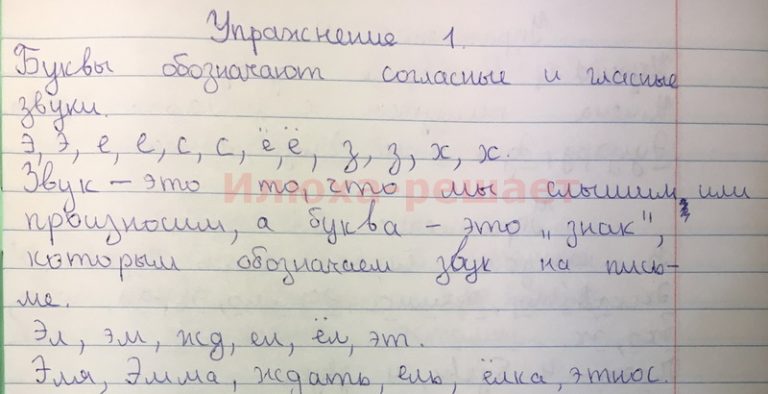 Упражнение 1.
Буквы обозначают согласные и гласные
звуки.
э, э, е, е, с, с, ё, ё, з, з, х, х.
Звук – это то, что мы слышим или
произносим, а буква – это „знак",
которым обозначаем звук на пись-
ме.
Эл, эм, жд, ел, ёл, эт.
Эля, Эмма, ждать, ель, ёлка, этнос.
Илюха решает